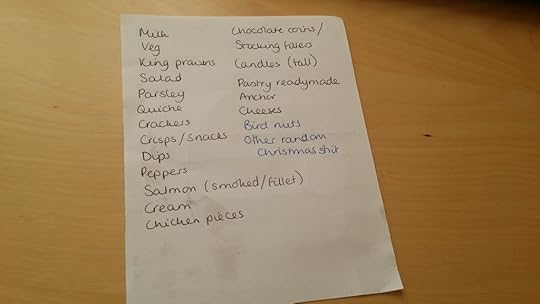 Milk
Veg
King prawns
Salad
Parsley
Quiche
Crackers
Crisps/snacks
Dips
Peppers
Salmon (smoked/fillet)
Cream
Chicken pieces
Chocolate coins/
Stocking fillers
Candles (tall)
Pastry readymade
Anchor
Cheeses
Bird nuts
Other random
Christmas shit